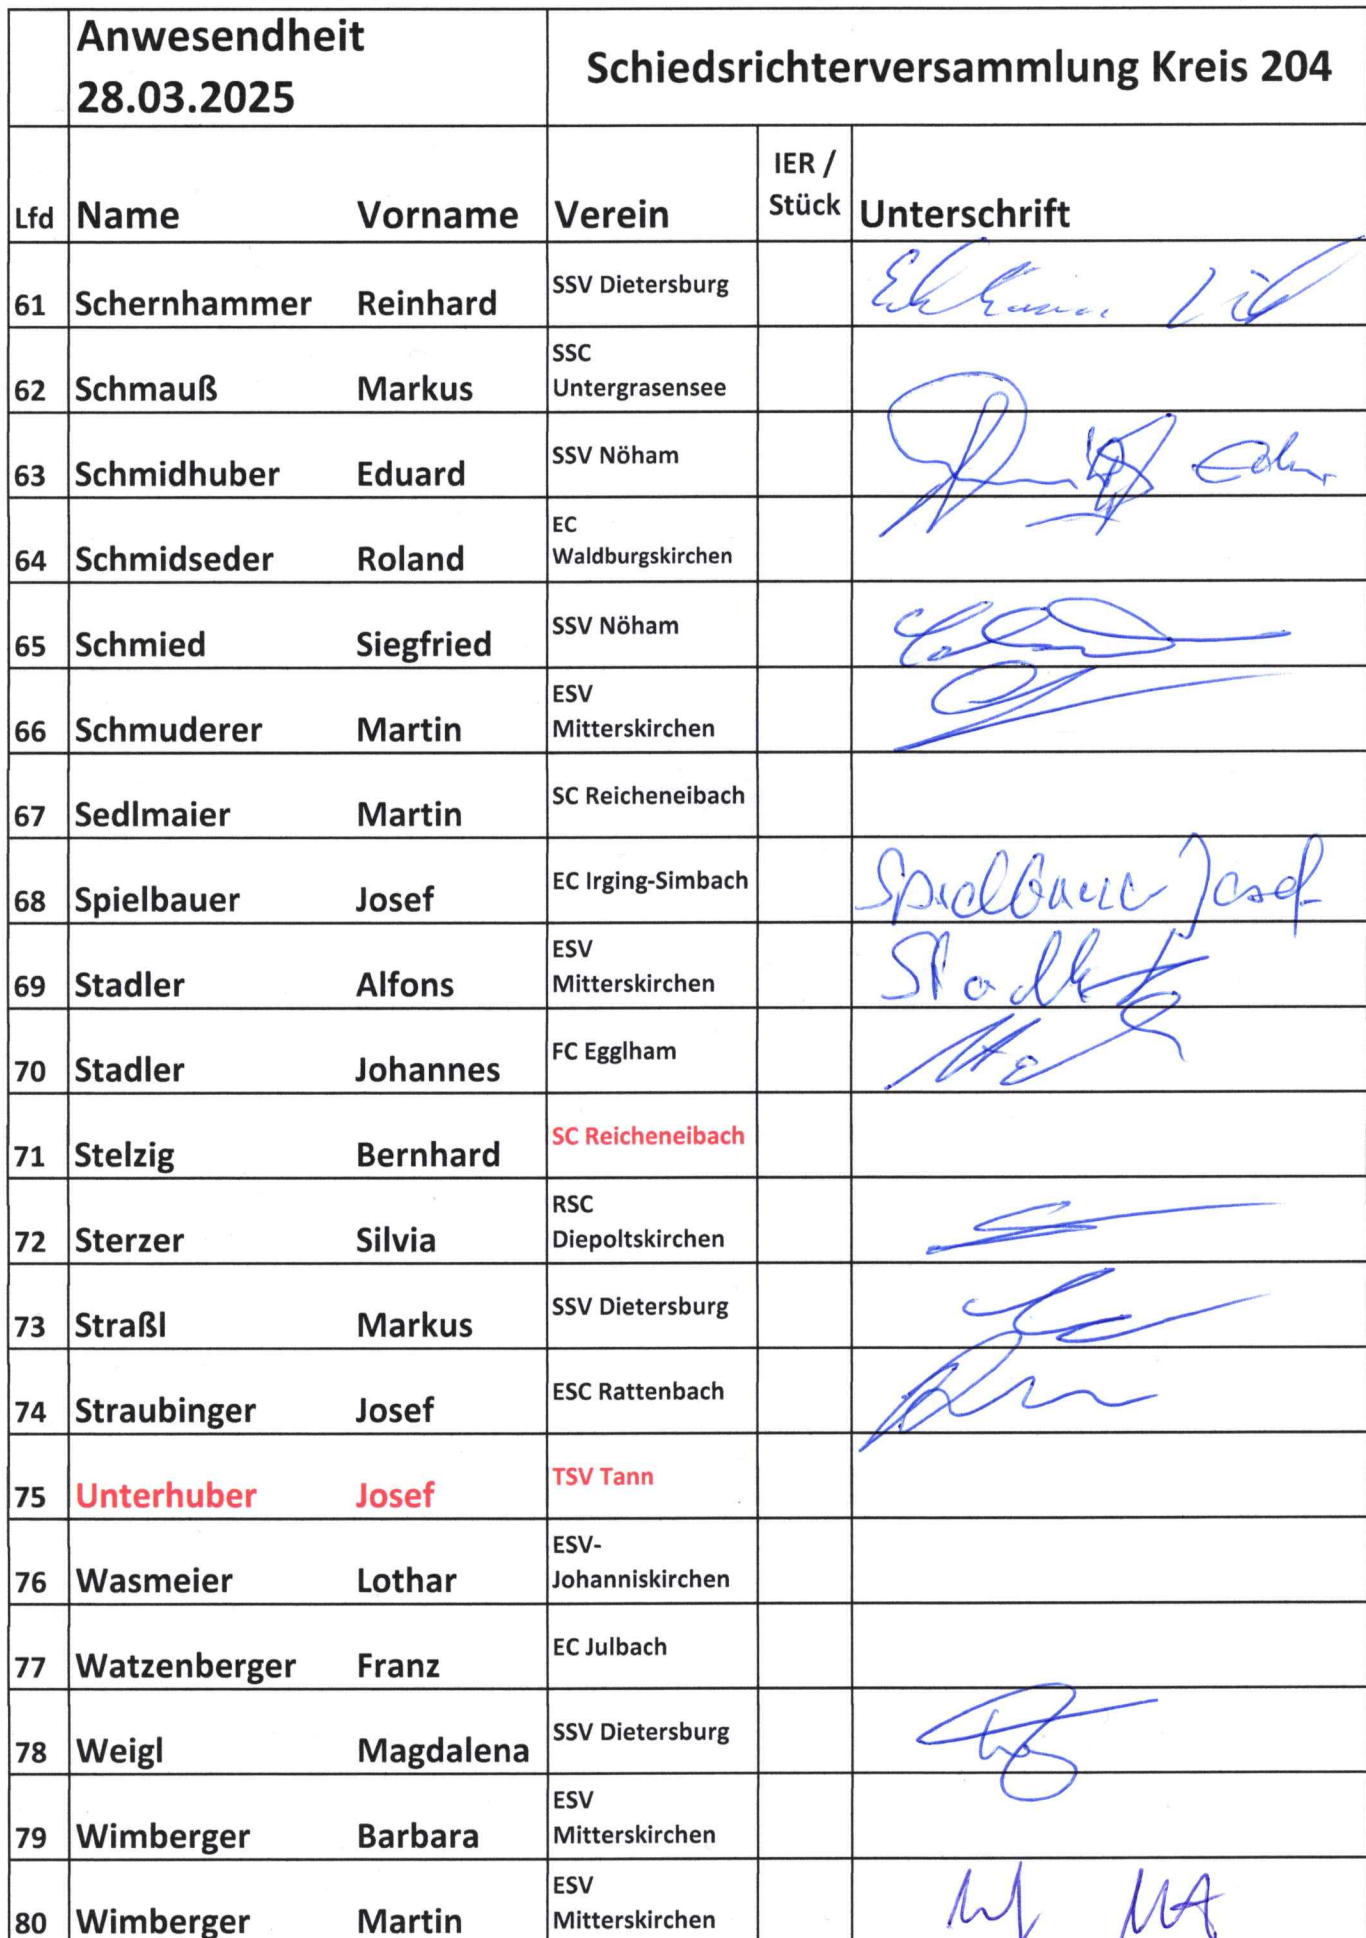 Anwesendheit
28.03.2025
Schiedsrichterversammlung Kreis 204
Lfd Name Vorname Verein IER / Stück Unterschrift
61 Schernhammer Reinhard SSV Dietersburg
62 Schmauß Markus SSC Untergrasensee
63 Schmidhuber Eduard SSV Nöham
64 Schmidseder Roland EC Waldburgskirchen
65 Schmied Siegfried SSV Nöham
66 Schmuderer Martin ESV Mitterskirchen
67 Sedlmaier Martin SC Reicheneibach
68 Spielbauer Josef EC Irging-Simbach Spielbauer Josef
69 Stadler Alfons ESV Mitterskirchen Stadler
70 Stadler Johannes FC Egglham
71 Stelzig Bernhard SC Reicheneibach
72 Sterzer Silvia RSC Diepoltskirchen
73 Straßl Markus SSV Dietersburg
74 Straubinger Josef ESC Rattenbach
75 Unterhuber Josef TSV Tann
76 Wasmeier Lothar ESV-Johanniskirchen
77 Watzenberger Franz EC Julbach
78 Weigl Magdalena SSV Dietersburg
79 Wimberger Barbara ESV Mitterskirchen
80 Wimberger Martin ESV Mitterskirchen